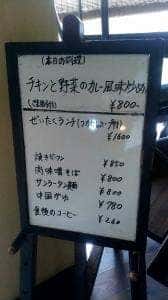 (本日のお料理)
チキンと野菜のカレー風味炒め
¥800-
ぜいたくランチ
¥1600
焼きビーフン ¥850
肉味噌そば ¥800
サンラータン麺 ¥800
中国がゆ ¥780
食後のコーヒー ¥260